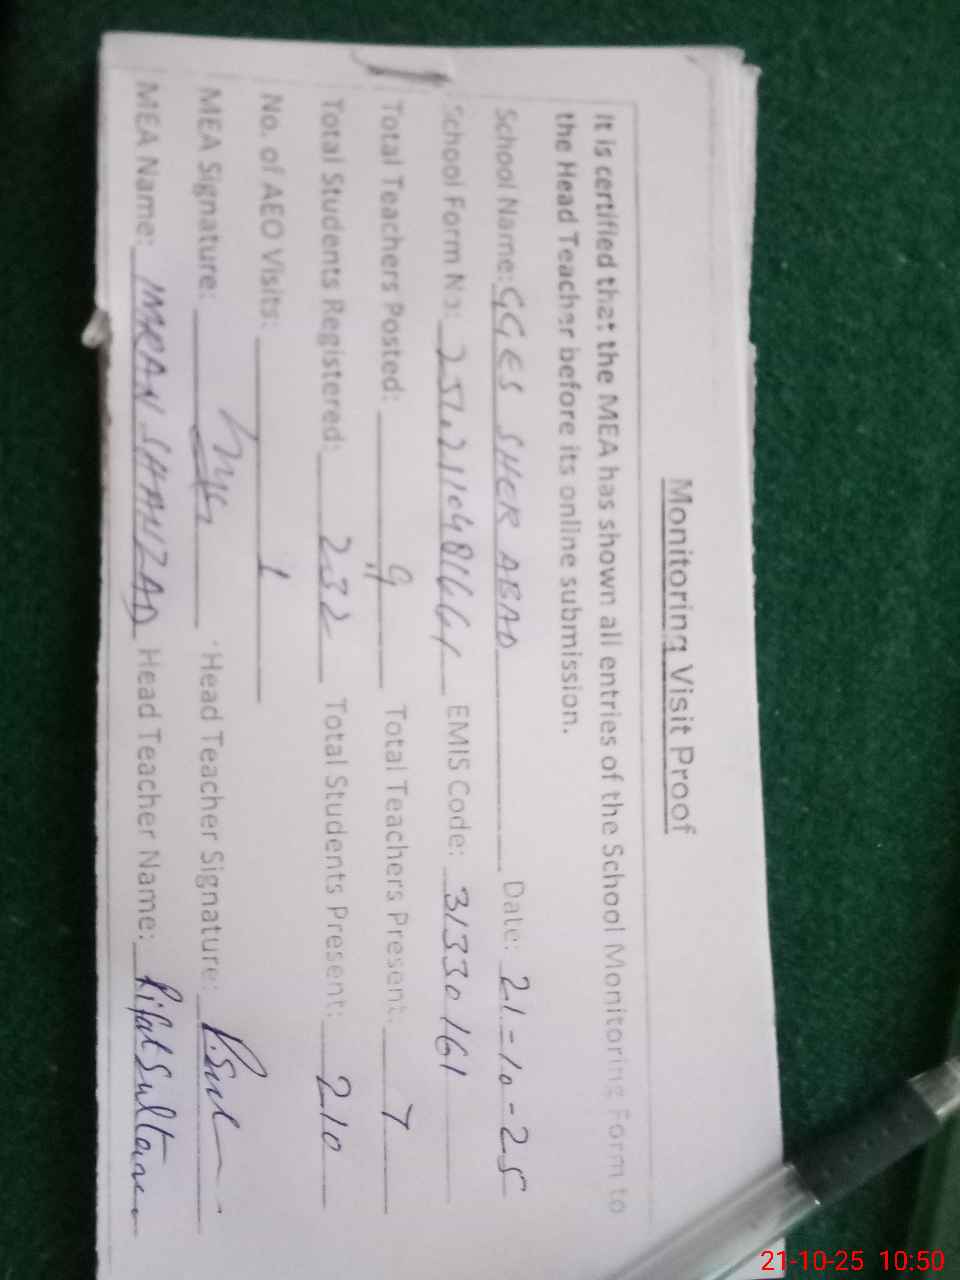 Monitoring Visit Proof
It is certified that the MEA has shown all entries of the School Monitoring Form to
the Head Teacher before its online submission.
School Name: GGES SHER ABAD Date: 21-10-25
School Form No: EMIS Code: 31330161
Total Teachers Posted: 9 Total Teachers Present: 7
Total Students Registered: 232 Total Students Present: 210
No. of AEO Visits: 1
MEA Signature: Head Teacher Signature: R.Sul
MEA Name: IMRAN SHAHZAD Head Teacher Name: Rifat Sultana
21-10-25 10:50